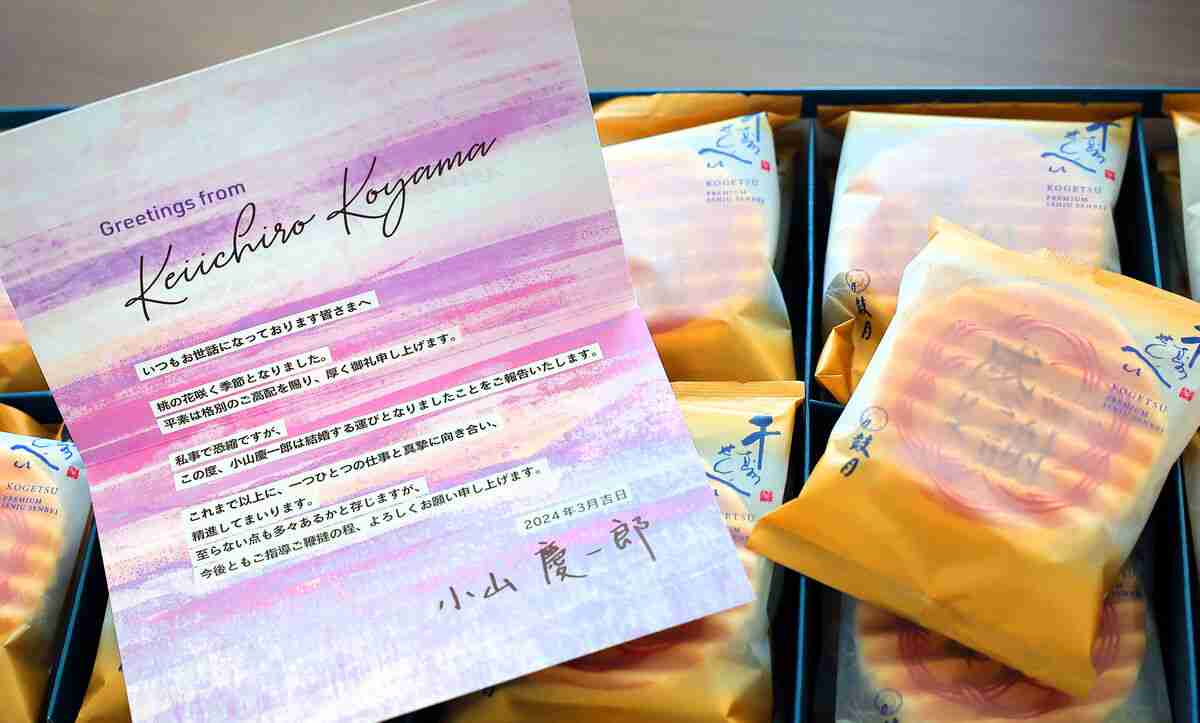 Greetings from
Keiichiro Koyama
いつもお世話になっております皆さまへ
桃の花咲く季節となりました。
平素は格別のご高配を賜り、厚く御礼申し上げます。
私事で恐縮ですが、
この度、小山慶一郎は結婚する運びとなりましたことをご報告いたします。
これまで以上に、一つひとつの仕事と真摯に向き合い、
精進してまいります。
至らない点も多々あるかと存じますが、
今後ともご指導ご鞭撻の程、よろしくお願い申し上げます。
2024年3月吉日
小山 慶一郎
千寿せんべい
KOGETSU
PREMIUM
SENJU SENBEI
千寿せんべい
KOGETSU
PREMIUM
SENJU SENBEI
鼓月
千寿せんべい
KOGETSU
PREMIUM
SENJU SENBEI
鼓月
千寿せんべい
KOGETSU
PREMIUM
SENJU SENBEI
千寿せんべい
鼓月